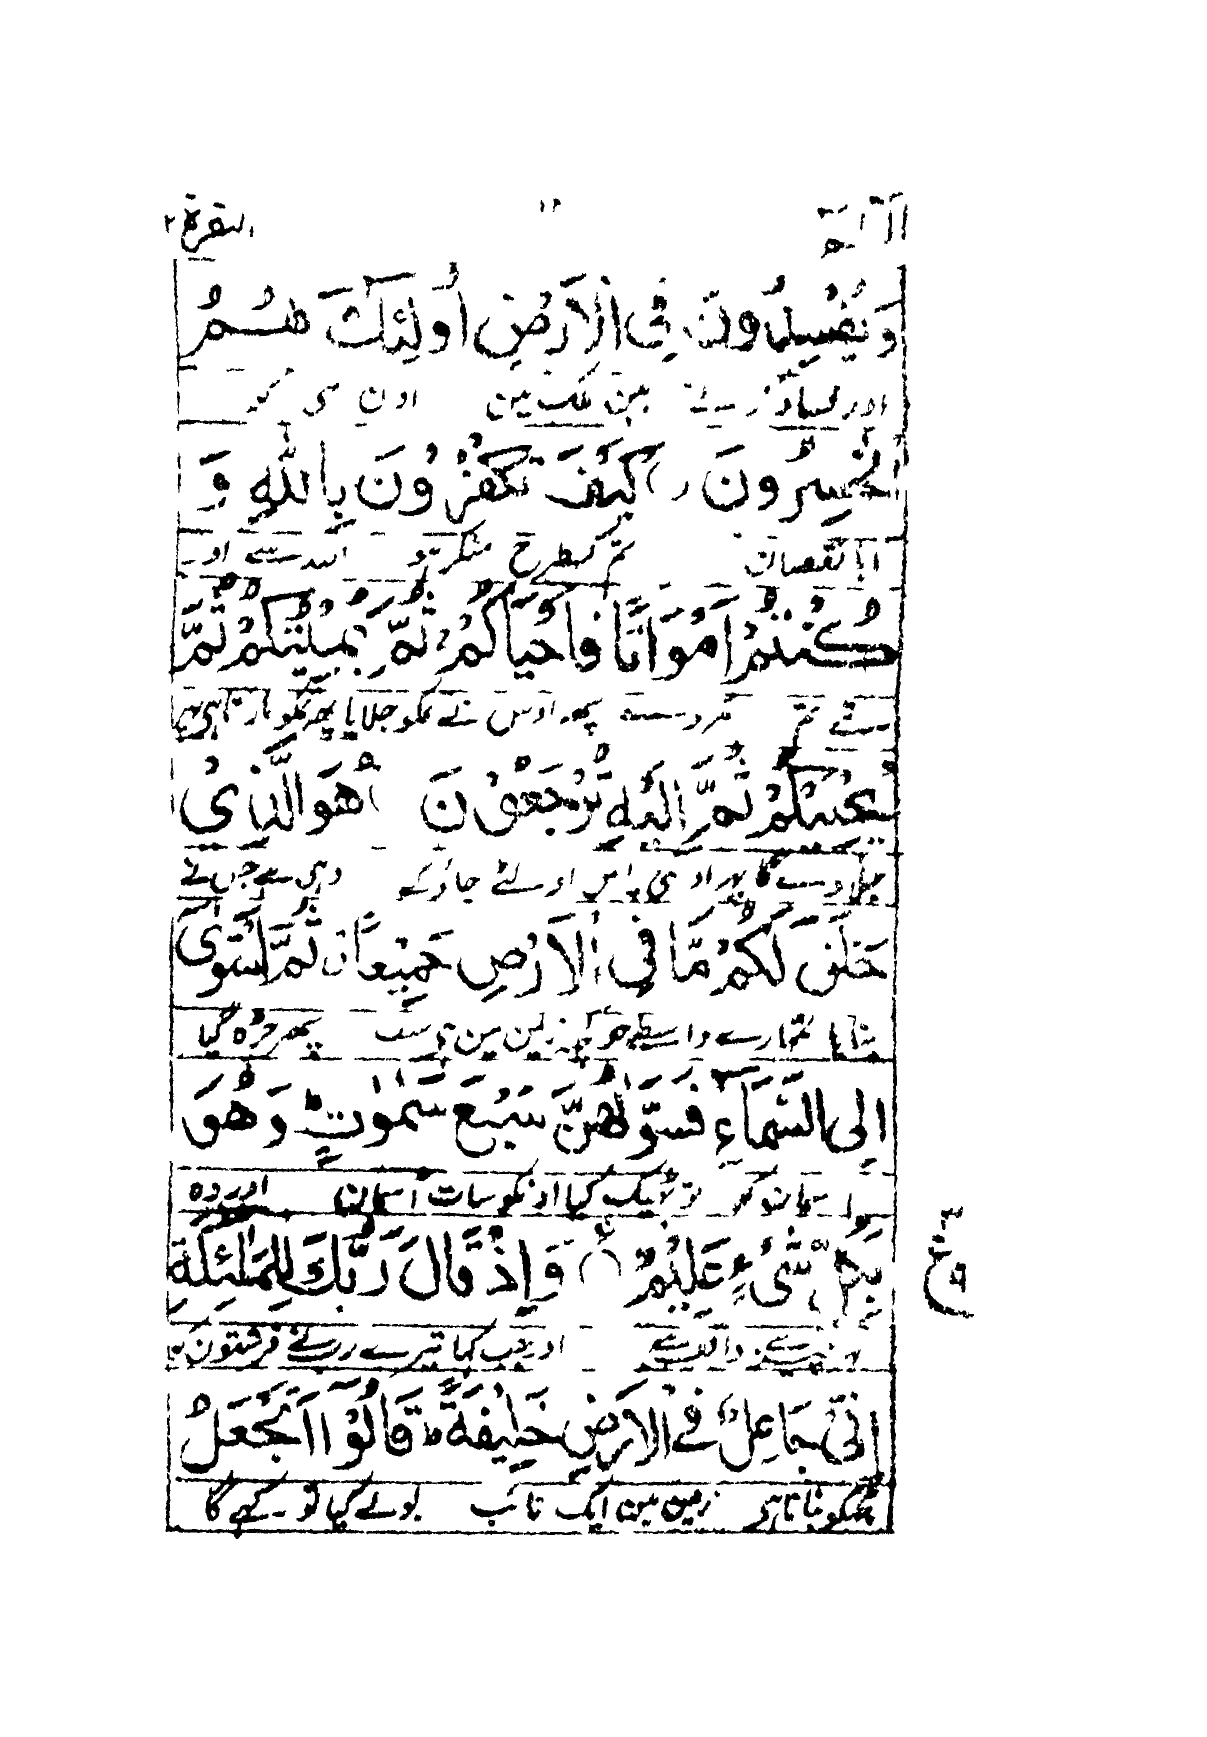 الٓمّٓ ١ ١٢ البقرة ٢
وَيُفْسِدُونَ فِي الْاَرْضِ اُولٰٓئِكَ هُمُ
اور فساد کرتے ہین ملک مین اون ہی کو
الْخٰسِرُونَ كَيْفَ تَكْفُرُونَ بِاللّٰهِ وَ
آیا نقصان تم کسطرح منکر ہو اللہ سے اور
كُنْتُمْ اَمْوَاتًا فَاَحْيَاكُمْ ثُمَّ يُمِيْتُكُمْ ثُمَّ
تھے تم مردے پھر اوس نے تمکو جلایا پھر تمکو مارتا ہی پھر
يُحْيِيْكُمْ ثُمَّ اِلَيْهِ تُرْجَعُوْنَ هُوَ الَّذِيْ
پھر اوسی پاس اولٹے جاؤگے وہی ہے جس نے
خَلَقَ لَكُمْ مَّا فِي الْاَرْضِ جَمِيْعًا ثُمَّ اسْتَوٰٓى
بنایا تمہارے واسطے جو کچھ زمین مین ہی سب پھر چڑہ گیا
اِلَى السَّمَآءِ فَسَوّٰىهُنَّ سَبْعَ سَمٰوٰتٍ ط وَهُوَ
آسمانکو تو ٹھیک کیا اونکو سات آسمان اور وہ
بِكُلِّ شَيْءٍ عَلِيْمٌ وَاِذْ قَالَ رَبُّكَ لِلْمَلٰٓئِكَةِ
ہر چیز سے واقف ہے اور جب کہا تیرے رب نے فرشتون کو
اِنِّيْ جَاعِلٌ فِي الْاَرْضِ خَلِيْفَةً ط قَالُوْٓا اَتَجْعَلُ
مجھکو بنانا ہی زمین مین ایک نائب بولے کیا تو رکھے گا
٣
ع
٩